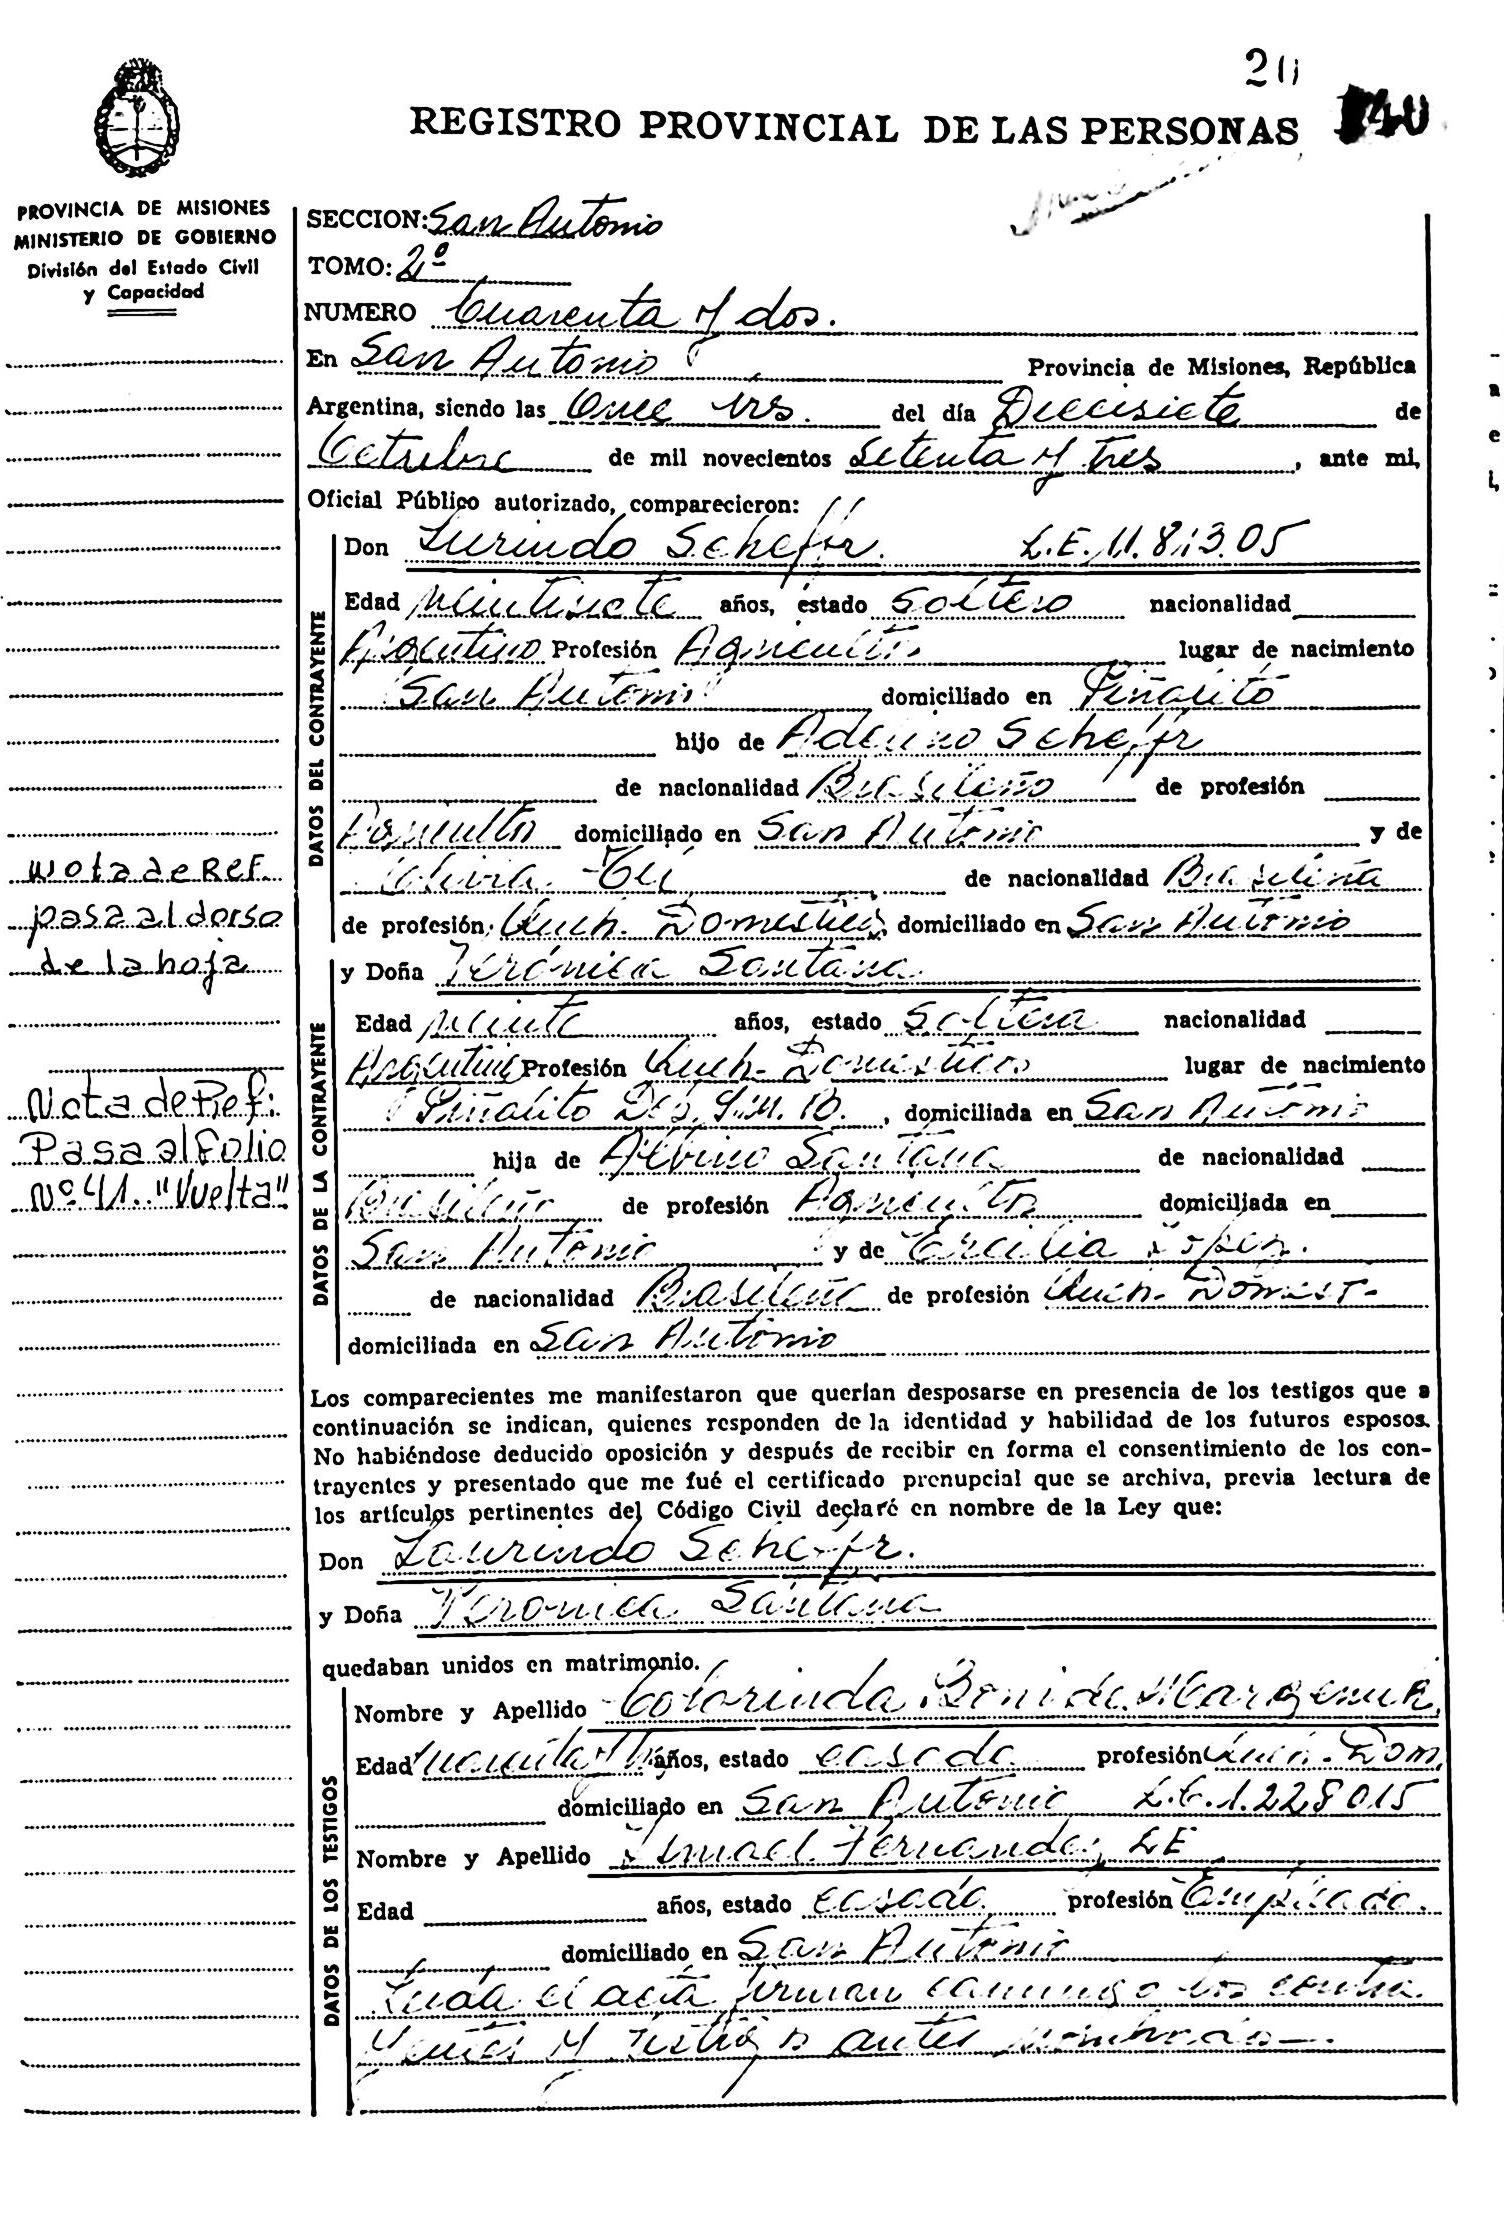 20
REGISTRO PROVINCIAL DE LAS PERSONAS 40
PROVINCIA DE MISIONES
MINISTERIO DE GOBIERNO
División del Estado Civil
y Capacidad
SECCION: San Antonio
TOMO: 2º
NUMERO Cuarenta y dos.
En San Antonio Provincia de Misiones, República
Argentina, siendo las Once hrs. del día Diecisiete de
Octubre de mil novecientos Setenta y tres, ante mi,
Oficial Público autorizado, comparecieron:
DATOS DEL CONTRAYENTE
Don Lurindo Scheffr. L.E.
Edad veintisiete años, estado Soltero nacionalidad
Argentino Profesión Agricultor lugar de nacimiento
San Antonio domiciliado en Piñalito
hijo de Adelino Scheffr
de nacionalidad Brasileño de profesión
Agricultor domiciliado en San Antonio y de
de nacionalidad Brasileña
de profesión Queh. Domesticos, domiciliado en San Antonio
DATOS DE LA CONTRAYENTE
y Doña Verónica Santana
Edad veinte años, estado Soltera nacionalidad
Argentina Profesión Queh. Domesticos lugar de nacimiento
Piñalito, domiciliada en San Antonio
hija de Albino Santana de nacionalidad
Brasileño de profesión Agricultor domiciliada en
San Antonio y de Ercilia Lopez.
de nacionalidad Brasileña de profesión Queh. Domest-
domiciliada en San Antonio
Los comparecientes me manifestaron que querían desposarse en presencia de los testigos que a
continuación se indican, quienes responden de la identidad y habilidad de los futuros esposos.
No habiéndose deducido oposición y después de recibir en forma el consentimiento de los con-
trayentes y presentado que me fué el certificado prenupcial que se archiva, previa lectura de
los artículos pertinentes del Código Civil declaré en nombre de la Ley que:
Don Laurindo Scheffr.
y Doña Veronica Santana
quedaban unidos en matrimonio.
DATOS DE LOS TESTIGOS
Nombre y Apellido Boni de
Edad años, estado casada profesión Queh. Dom,
domiciliado en San Antonio L.C.1.228015
Nombre y Apellido Ismael Fernandez LE
Edad años, estado casado profesión Empleado.
domiciliado en San Antonio
Leida el acta firman conmigo los contra
yentes y testigos antes nombrados—.
Nota de Ref.
pasa al dorso
de la hoja
Nota de Ref:
Pasa al Folio
Nº 41. "Vuelta"